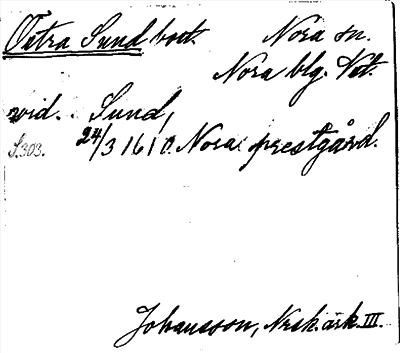 Östra Sund bort. Nora sn.
Nora blg. Vst.
vid. Sund,
S. 303. 24/3 1610. Nora prestgård.
Johansson, Norsk. ark. III.